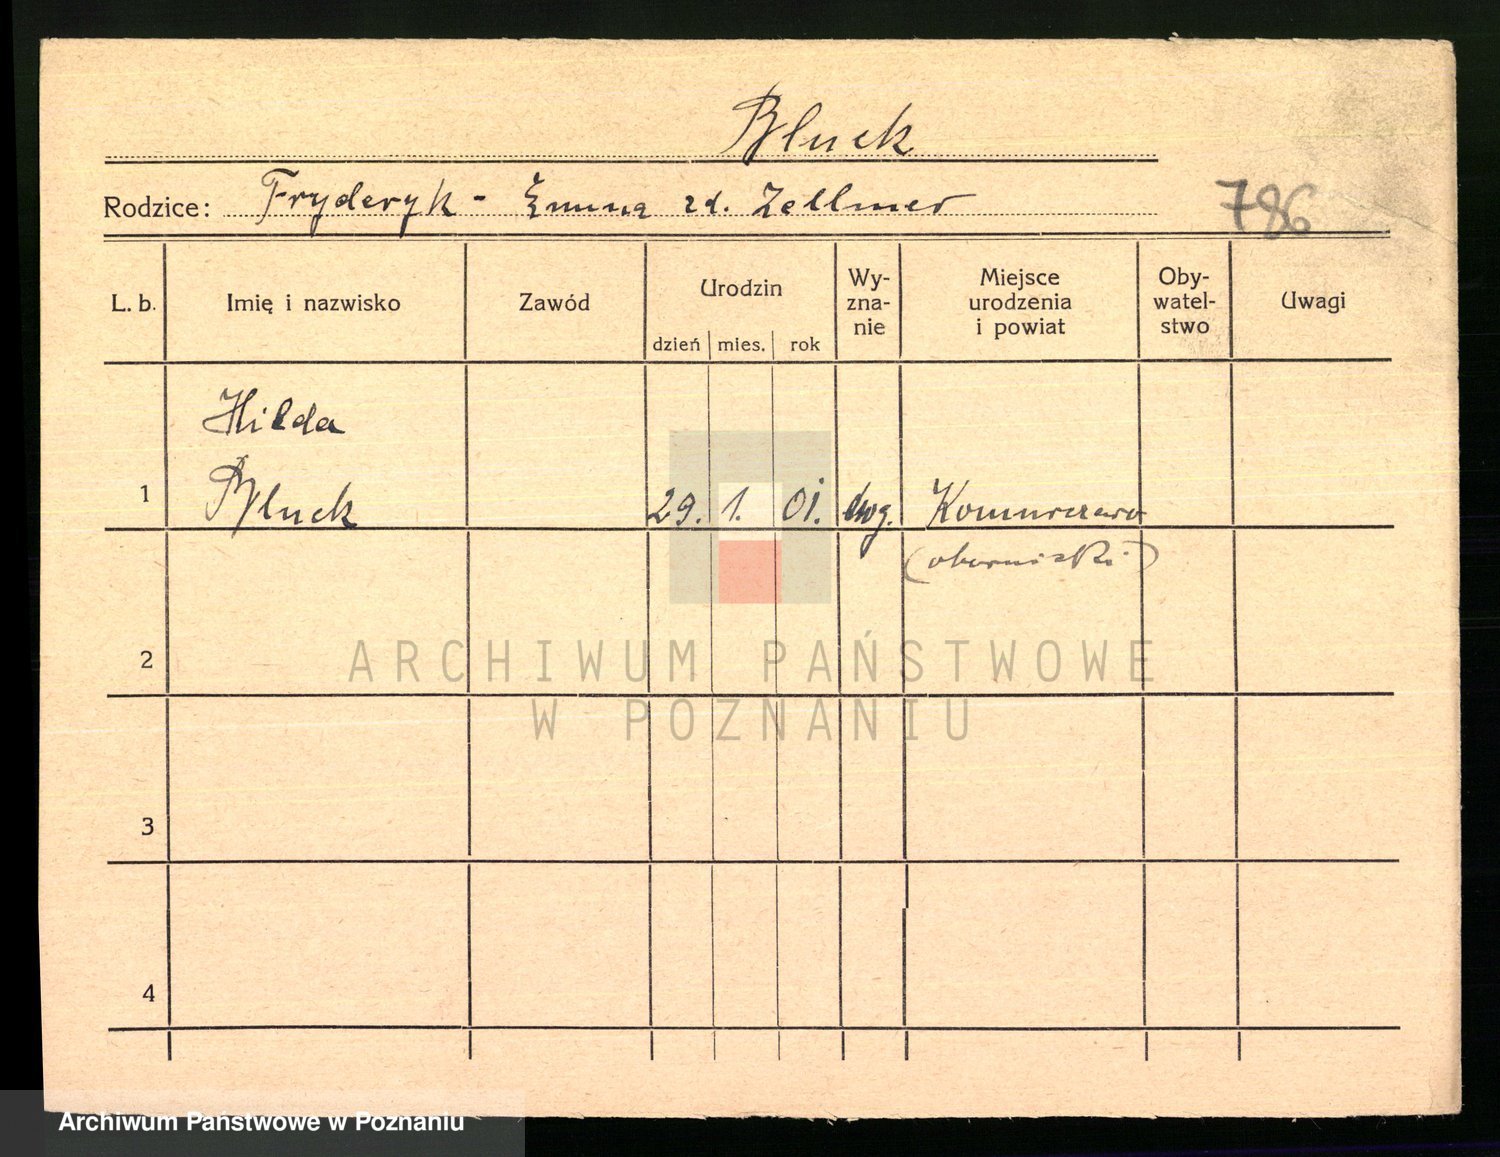 Bluck
Rodzice: Fryderyk - Emma zd. Zellmer
786
L. b.
Imię i nazwisko
Zawód
Urodzin
dzień mies. rok
Wy-
zna-
nie
Miejsce
urodzenia
i powiat
Oby-
watel-
stwo
Uwagi
Hilda
1 Bluck 29. 1. 01. ewg.
(obornicki)
2
ARCHIWUM PAŃSTWOWE
W POZNANIU
3
4
Archiwum Państwowe w Poznaniu